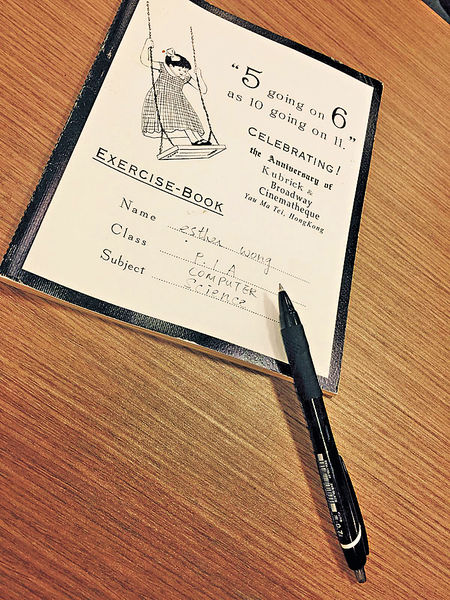 “5 going on 6
as 10 going on 11.”
CELEBRATING!
the Anniversary of
Kubrick &
Broadway
Cinematheque
Yau Ma Tei, HongKong
EXERCISE-BOOK
Name esther wong
Class P.1A
Subject COMPUTER
Science
0.7